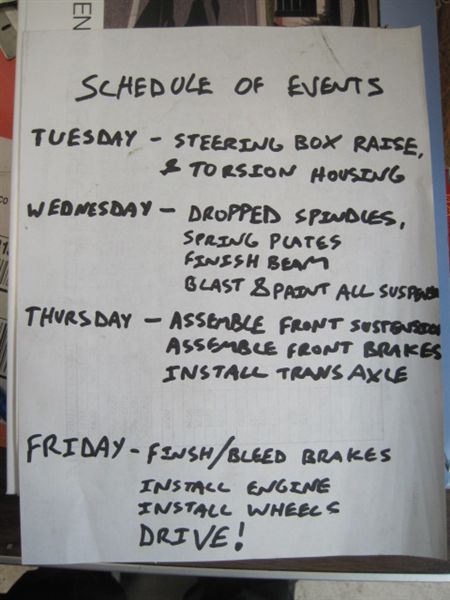 EN
SCHEDULE OF EVENTS
TUESDAY - STEERING BOX RAISE,
& TORSION HOUSING
WEDNESDAY - DROPPED SPINDLES,
SPRING PLATES
FINISH BEAM
BLAST & PAINT ALL SUSPENSION
THURSDAY - ASSEMBLE FRONT SUSTENSION
ASSEMBLE FRONT BRAKES
INSTALL TRANSAXLE
FRIDAY - FINSH/BLEED BRAKES
INSTALL ENGINE
INSTALL WHEELS
DRIVE!